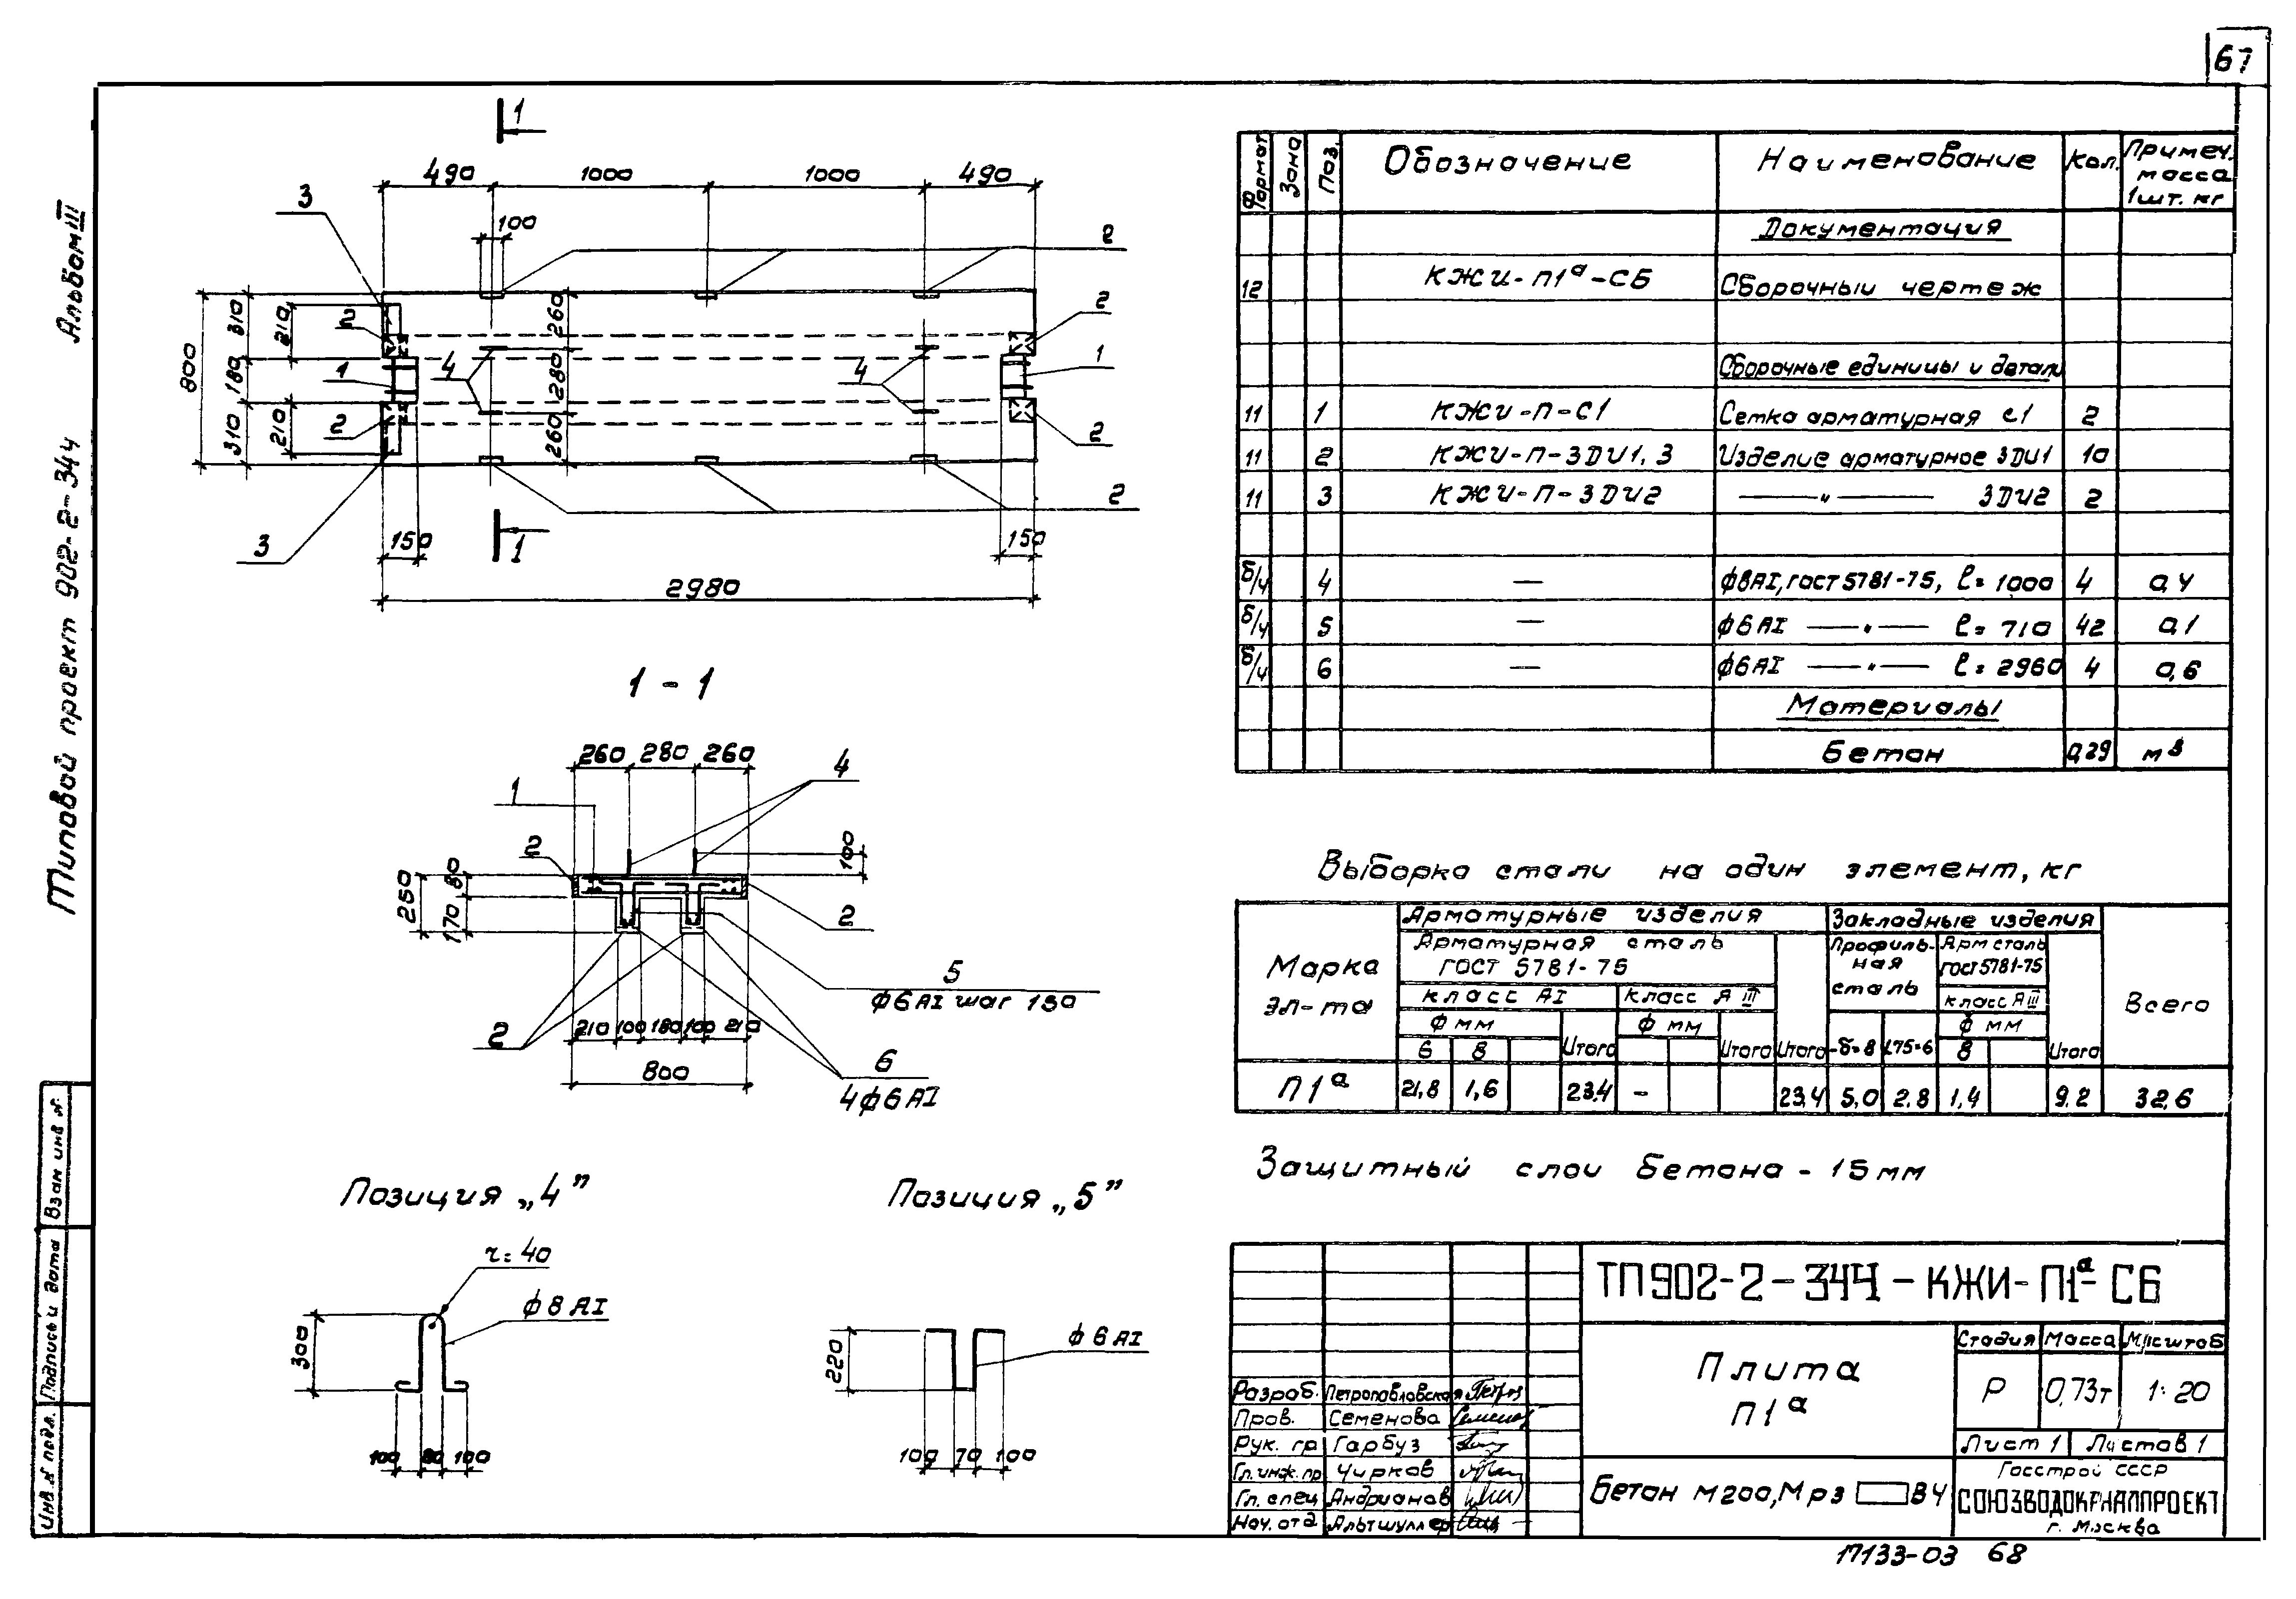 67
Альбом III
Типовой проект 902-2-344
Взам инв №
Подпись и дата
Инв. № подл.
1
490 1000 1000 490
3
100
2
800
310 180 310
210 210
260 280 260
2
1
2
4
4
2
1
2
3
2
150
1
150
2980
1-1
260 280 260
4
1
2
100
250
80
170
2
5
ф6АI шаг 150
2
210 100 180 100 210
800
6
4ф6АI
Позиция „4”
r=40
ф8АI
300
100 80 100
Позиция „5”
ф6АI
220
100 70 100
Формат Зона Поз. Обозначение Наименование Кол. Примеч. масса 1шт. кг
Документация
12 КЖИ-П1а-СБ Сборочный чертеж
Сборочные единицы и детали
11 1 КЖИ-П-С1 Сетка арматурная с1 2
11 2 КЖИ-П-ЗДИ1,3 Изделие арматурное ЗДИ1 10
11 3 КЖИ-П-ЗДИ2 —"— ЗДИ2 2
б/ч 4 — ф8АI, ГОСТ 5781-75, ℓ=1000 4 0,4
б/ч 5 — ф6АI —"— ℓ=710 42 0,1
б/ч 6 — ф6АI —"— ℓ=2960 4 0,6
Материалы
Бетон 0,29 м3
Выборка стали на один элемент, кг
Марка эл-та
Арматурные изделия
Закладные изделия
Всего
Арматурная сталь
ГОСТ 5781-75
Профильная сталь
Арм сталь
ГОСТ 5781-75
класс АI класс А III
класс А III
ф мм ф мм ф мм
6 8 Итого Итого Итого -δ=8 L75×6 8 Итого
П1а 21,8 1,6 23,4 - 23,4 5,0 2,8 1,4 9,2 32,6
Защитный слой бетона - 15 мм
ТП902-2-344-КЖИ-П1а-СБ
Плита
П1а
Стадия Масса Масштаб
Р 0,73т 1:20
Лист 1 Листов 1
Разраб. Петропавловская
Пров. Семенова
Рук. гр Гарбуз
Гл. инж. пр Чирков
Гл. спец Андрианов
Нач. отд Альтшуллер
Бетон М200, Мрз В4
Госстрой СССР
СОЮЗВОДОКАНАЛПРОЕКТ
г. Москва
17133-03 68